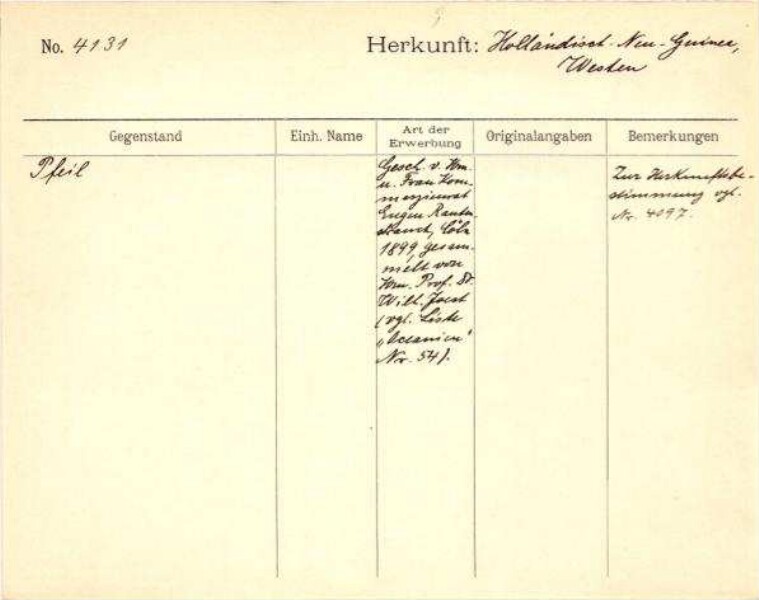 No. 4131
Herkunft: Holländisch-Neu-Guinea,
Westen
Gegenstand
Einh. Name
Art der
Erwerbung
Originalangaben
Bemerkungen
Pfeil
Gesch. v. Hrn.
u. Frau Kom-
merzienrat
Eugen Rauten-
strauch, Cöln
1899, gesam-
melt von
Hrn. Prof. Dr.
Wilh. Joest
(vgl. Liste
„Oceanien"
Nr. 54).
Zur Herkunftsbe-
stimmung vgl.
Nr. 4097.